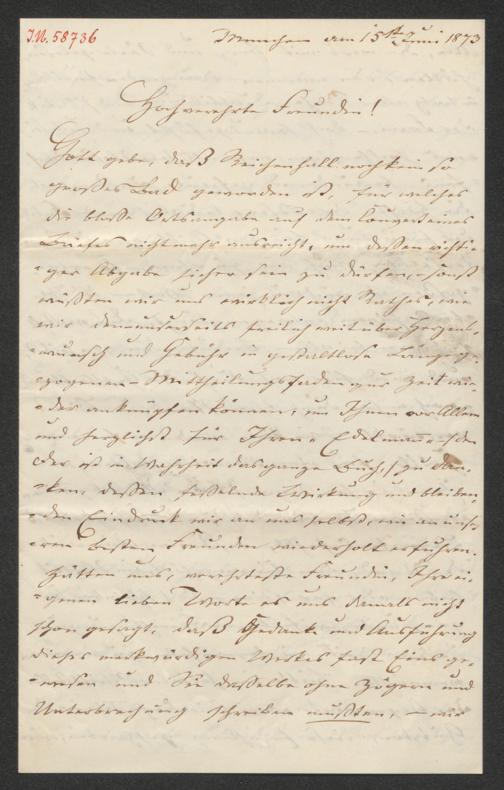 I.N. 58736
München am 15ten Juni 1873
Hochverehrte Freundin!
Gott gebe, daß Reichenhall noch kein so
großes Bad geworden ist, für welches
die bloße Ortsangabe auf dem Couvert eines
Briefes nicht mehr ausreicht, um dessen richti-
ger Abgabe sicher sein zu dürfen, sonst
wüßten wir uns wirklich nicht Rathes, wie
wir den unsererseits freilich weit über Herzens-
wunsch und Gebühr in gestaltlose Länge ge-
zogenen Mittheilungsfaden zur Zeit wie-
der anknüpfen können, um Ihnen vor Allem
und herzlichst für Ihren
der ist in Wahrheit das ganze Buch,) zu dan-
ken, dessen fesselnde Wirkung und bleiben-
den Eindruck wir an uns selbst, wie an unse-
ren besten Freunden wiederholt erfuhren.
Hätten uns, verehrteste Freundin, Ihre ei-
genen lieben Worte es uns damals nicht
schon gesagt, daß Gedanke und Ausführung
dieses merkwürdigen Werkes fast Eins ge-
wesen und Sie dasselbe ohne Zögern und
Unterbrechung schreiben mußten, – wir